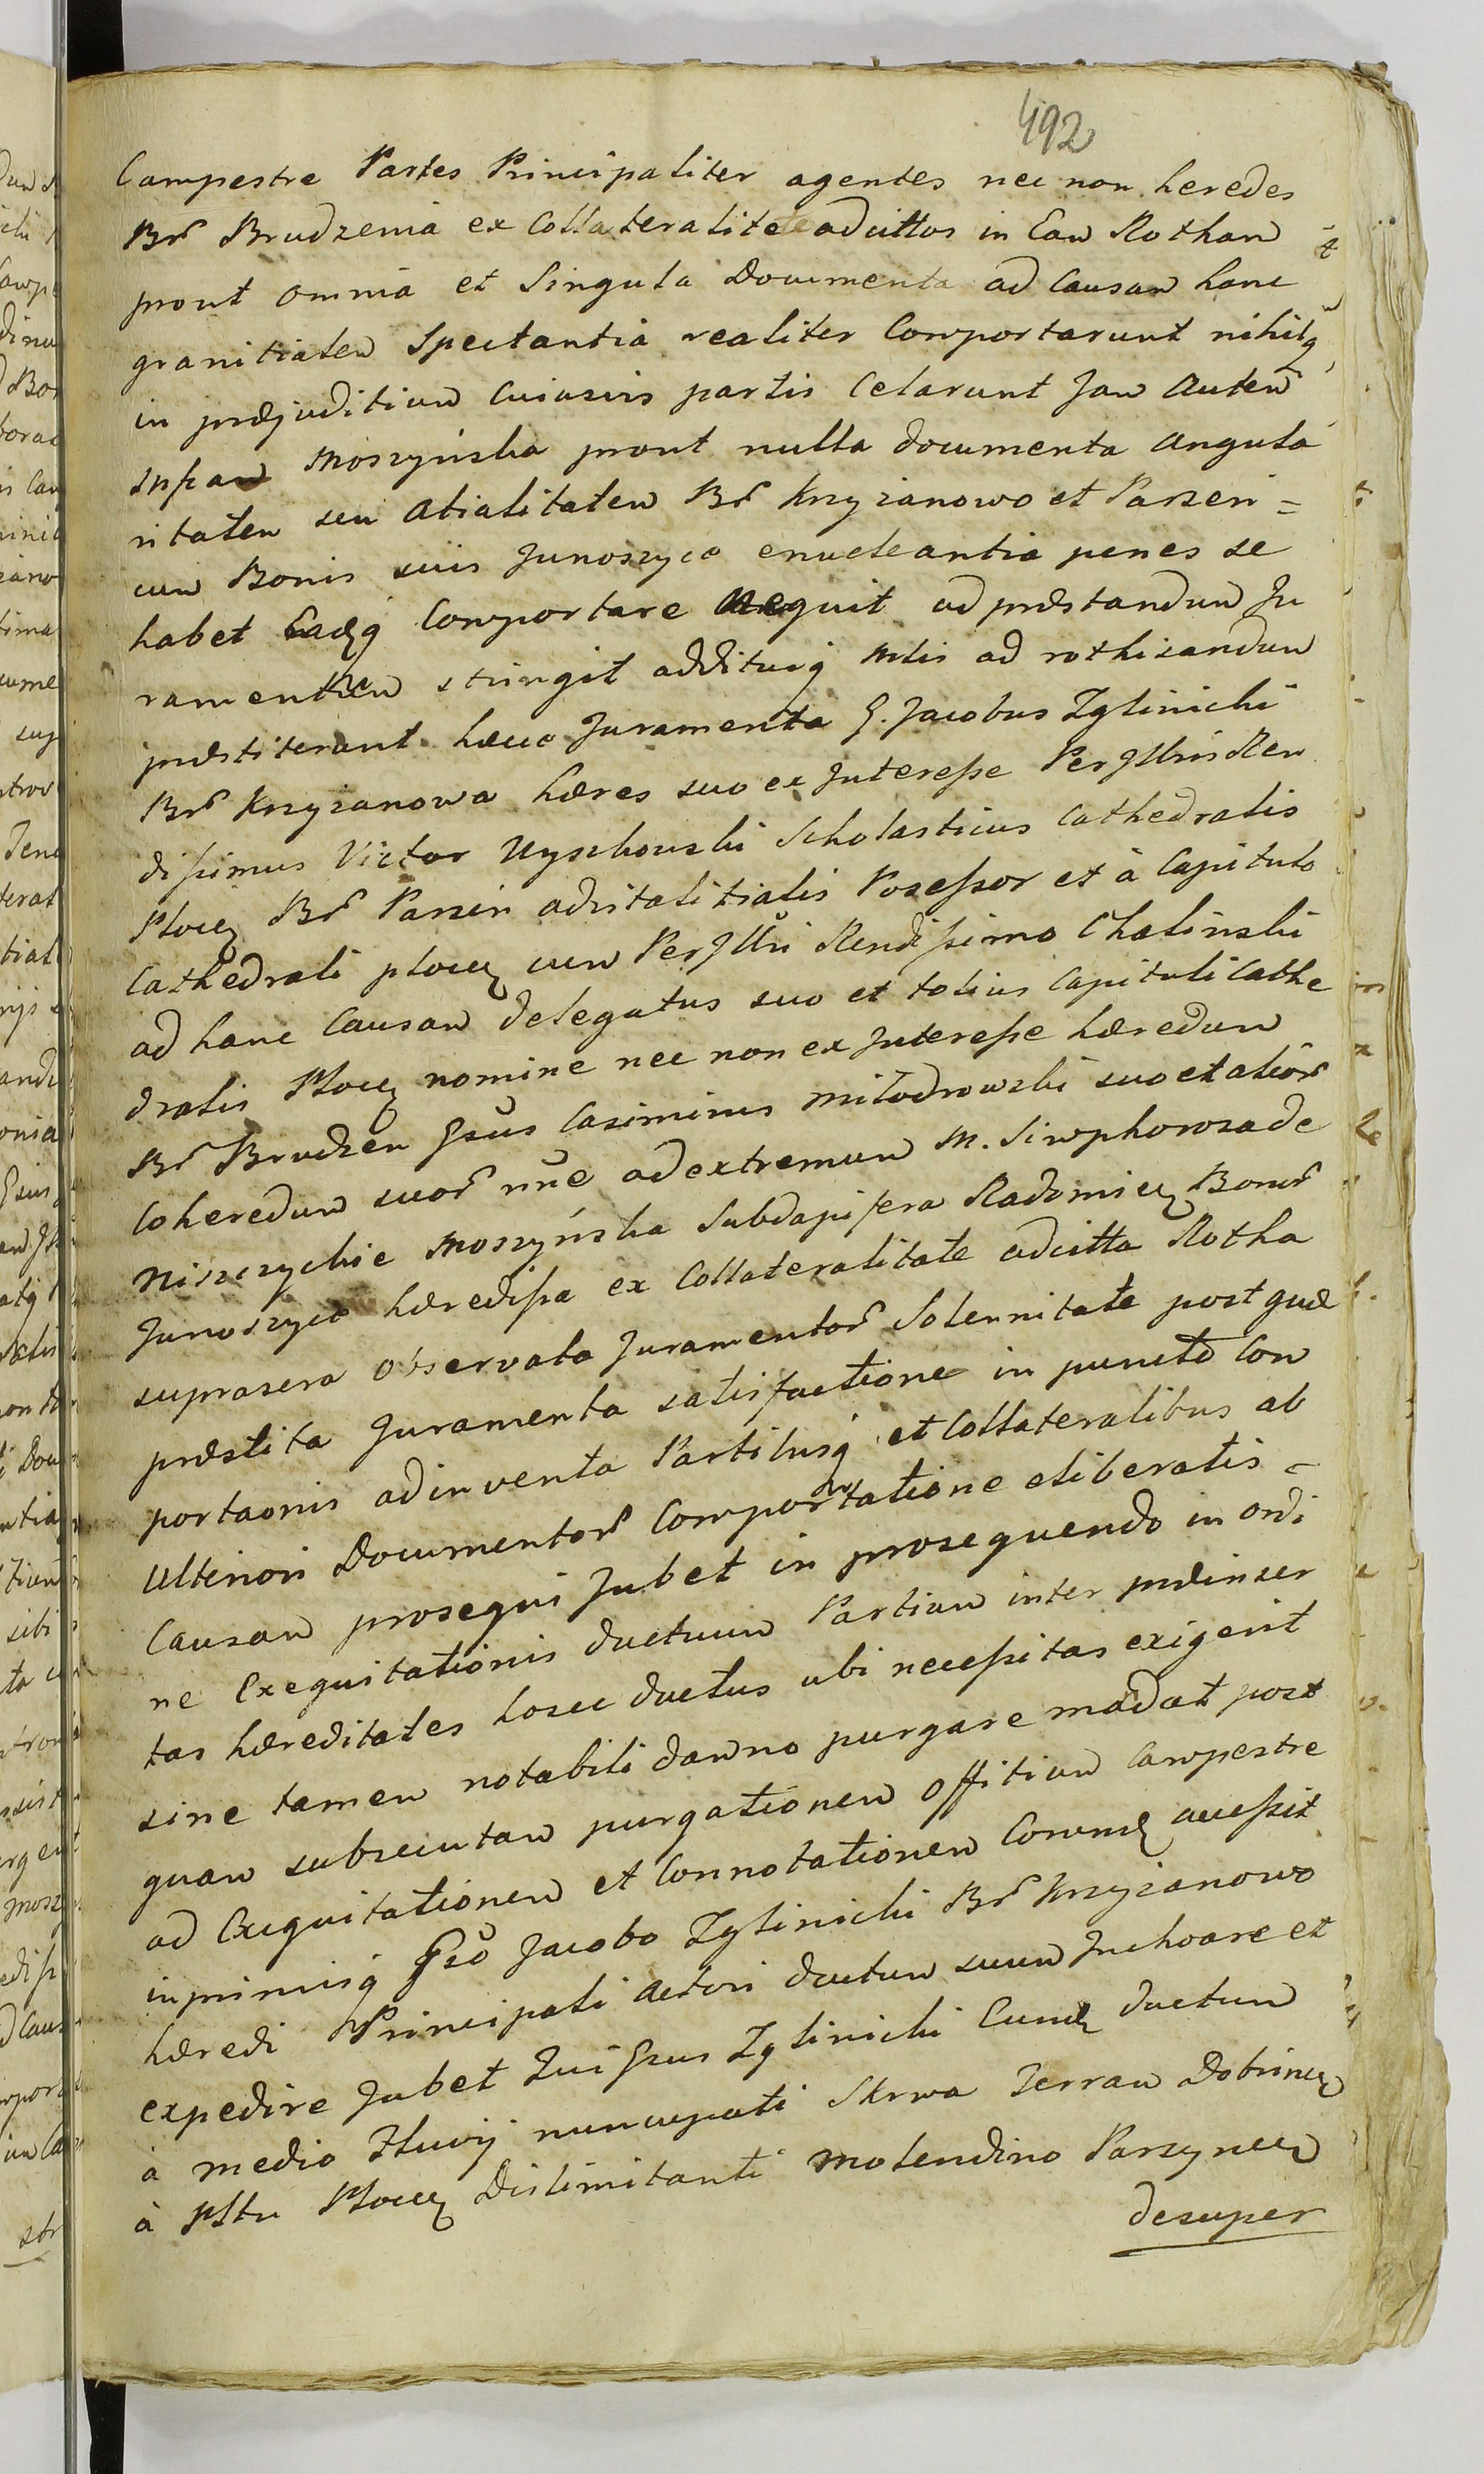 492
Campestre Partes Principaliter agentes nec non heredes
Brͬ Brudzenia ex Collateralitate adcittos in Eam Rotham
prout omnia et Singula Documenta ad Causam hanc
granitialem Spectantia realiter Comportarunt nihilq̃
in præjuditium Cuiusvis partis Celarunt Jam Autem
Mfam Moszyńska prout nulla documenta angula
ritatem seu Atialitatem Brͬ Krzyzanowo et Parzen =
cum Bonis suis Junoszyce enucleantia penes se
habet Eaq̨ Comportare nequit ad præstandum Ju
ramentum stringit additurq̨ Mtis ad rothizandum
præstiterunt hæcce Juramenta G. Jacobus Zglinicki
Brͬ Krzyzanowa hæres suo ex Interesse Perjllris Ren
dissimus Victor Uyszkowski Scholasticus Cathedralis
Plocę Brͬ Parzen advitalitialis Possessor et à Capitulo
Cathedrali plocę cum Perjllri Rendissimo Chalinski
ad hanc Causam delegatus suo et totius Capituli Cathe
dralis Plocę nomine nec non ex Interesse hæredum
Brͬ Brudzen Gsũs Casimirus Miłodrowski suo et alior̃
Coheredum suor̃ nñe ad extremum M. Simphoroza de
Niszczyckie Moszyńska Subdapifera Radomię Bonor̃
Junoszyce hæredissa ex Collateralitate adcitta Rotha
suprasera observata Juramentor̃ Solennitate post quæ
præstita Juramenta satisfactione in puncto Com
portaonis adinventa Partibusq̨ et Collateralibus ab
Ulteriori Documentor̃ Comportatione eliberatis =
Causam prosequi Jubet in prosequendo in ordi
ne Exequitationis ductuum Partium inter prædinser
tas hæreditates hosce ductus ubi necessitas exigerit
sine tamen notabili damno purgare mãdat post
quam subsecutam purgationem Offitium Campestre
ad Exequitationem et Connotationem Eorumd̨ accessit
inprimisq̨ Gsõ Jacobo Zglinicki Brͬ Krzyzanowo
hæredi Principali Actori ductum suum Inchoare et
expedire Jubet Qui Gsus Zglinicki Eund̨ ductum
à medio Fluvij nuncupati Skrwa Terram Dobrinę
à Pltu Plocę Dislimitanti Molendino Parzynę
desuper